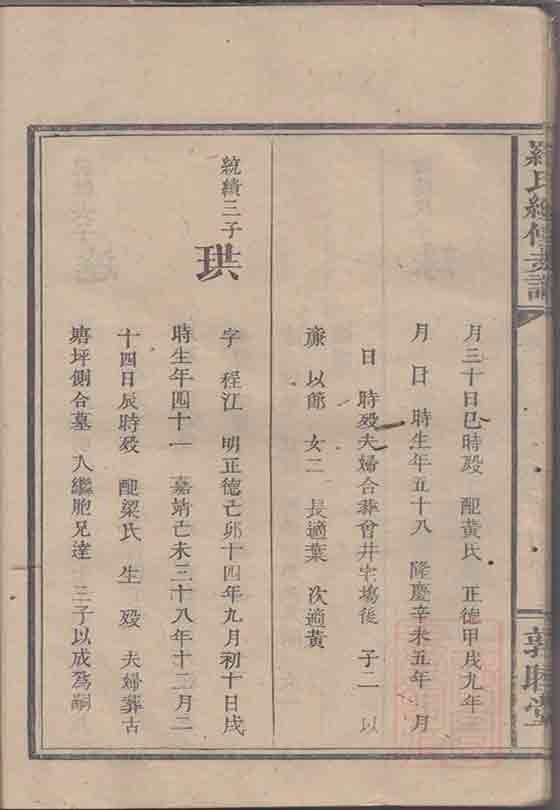 羅氏總修支譜
敦睦堂
月三十日巳時殁 配黃氏 正德甲戌九年
月 日 時生年五十八 隆慶辛未五年 月
日 時殁夫婦合葬會井宅塲後 子二 以
廉 以郎 女二 長適葉 次適黃
統績三子
珙
字 程江 明正德己卯十四年九月初十日戌
時生年四十一 嘉靖己未三十八年十二月二
十四日辰時殁 配梁氏 生 殁 夫婦葬古
塘坪側合墓 入繼胞兄達 三子以成爲嗣